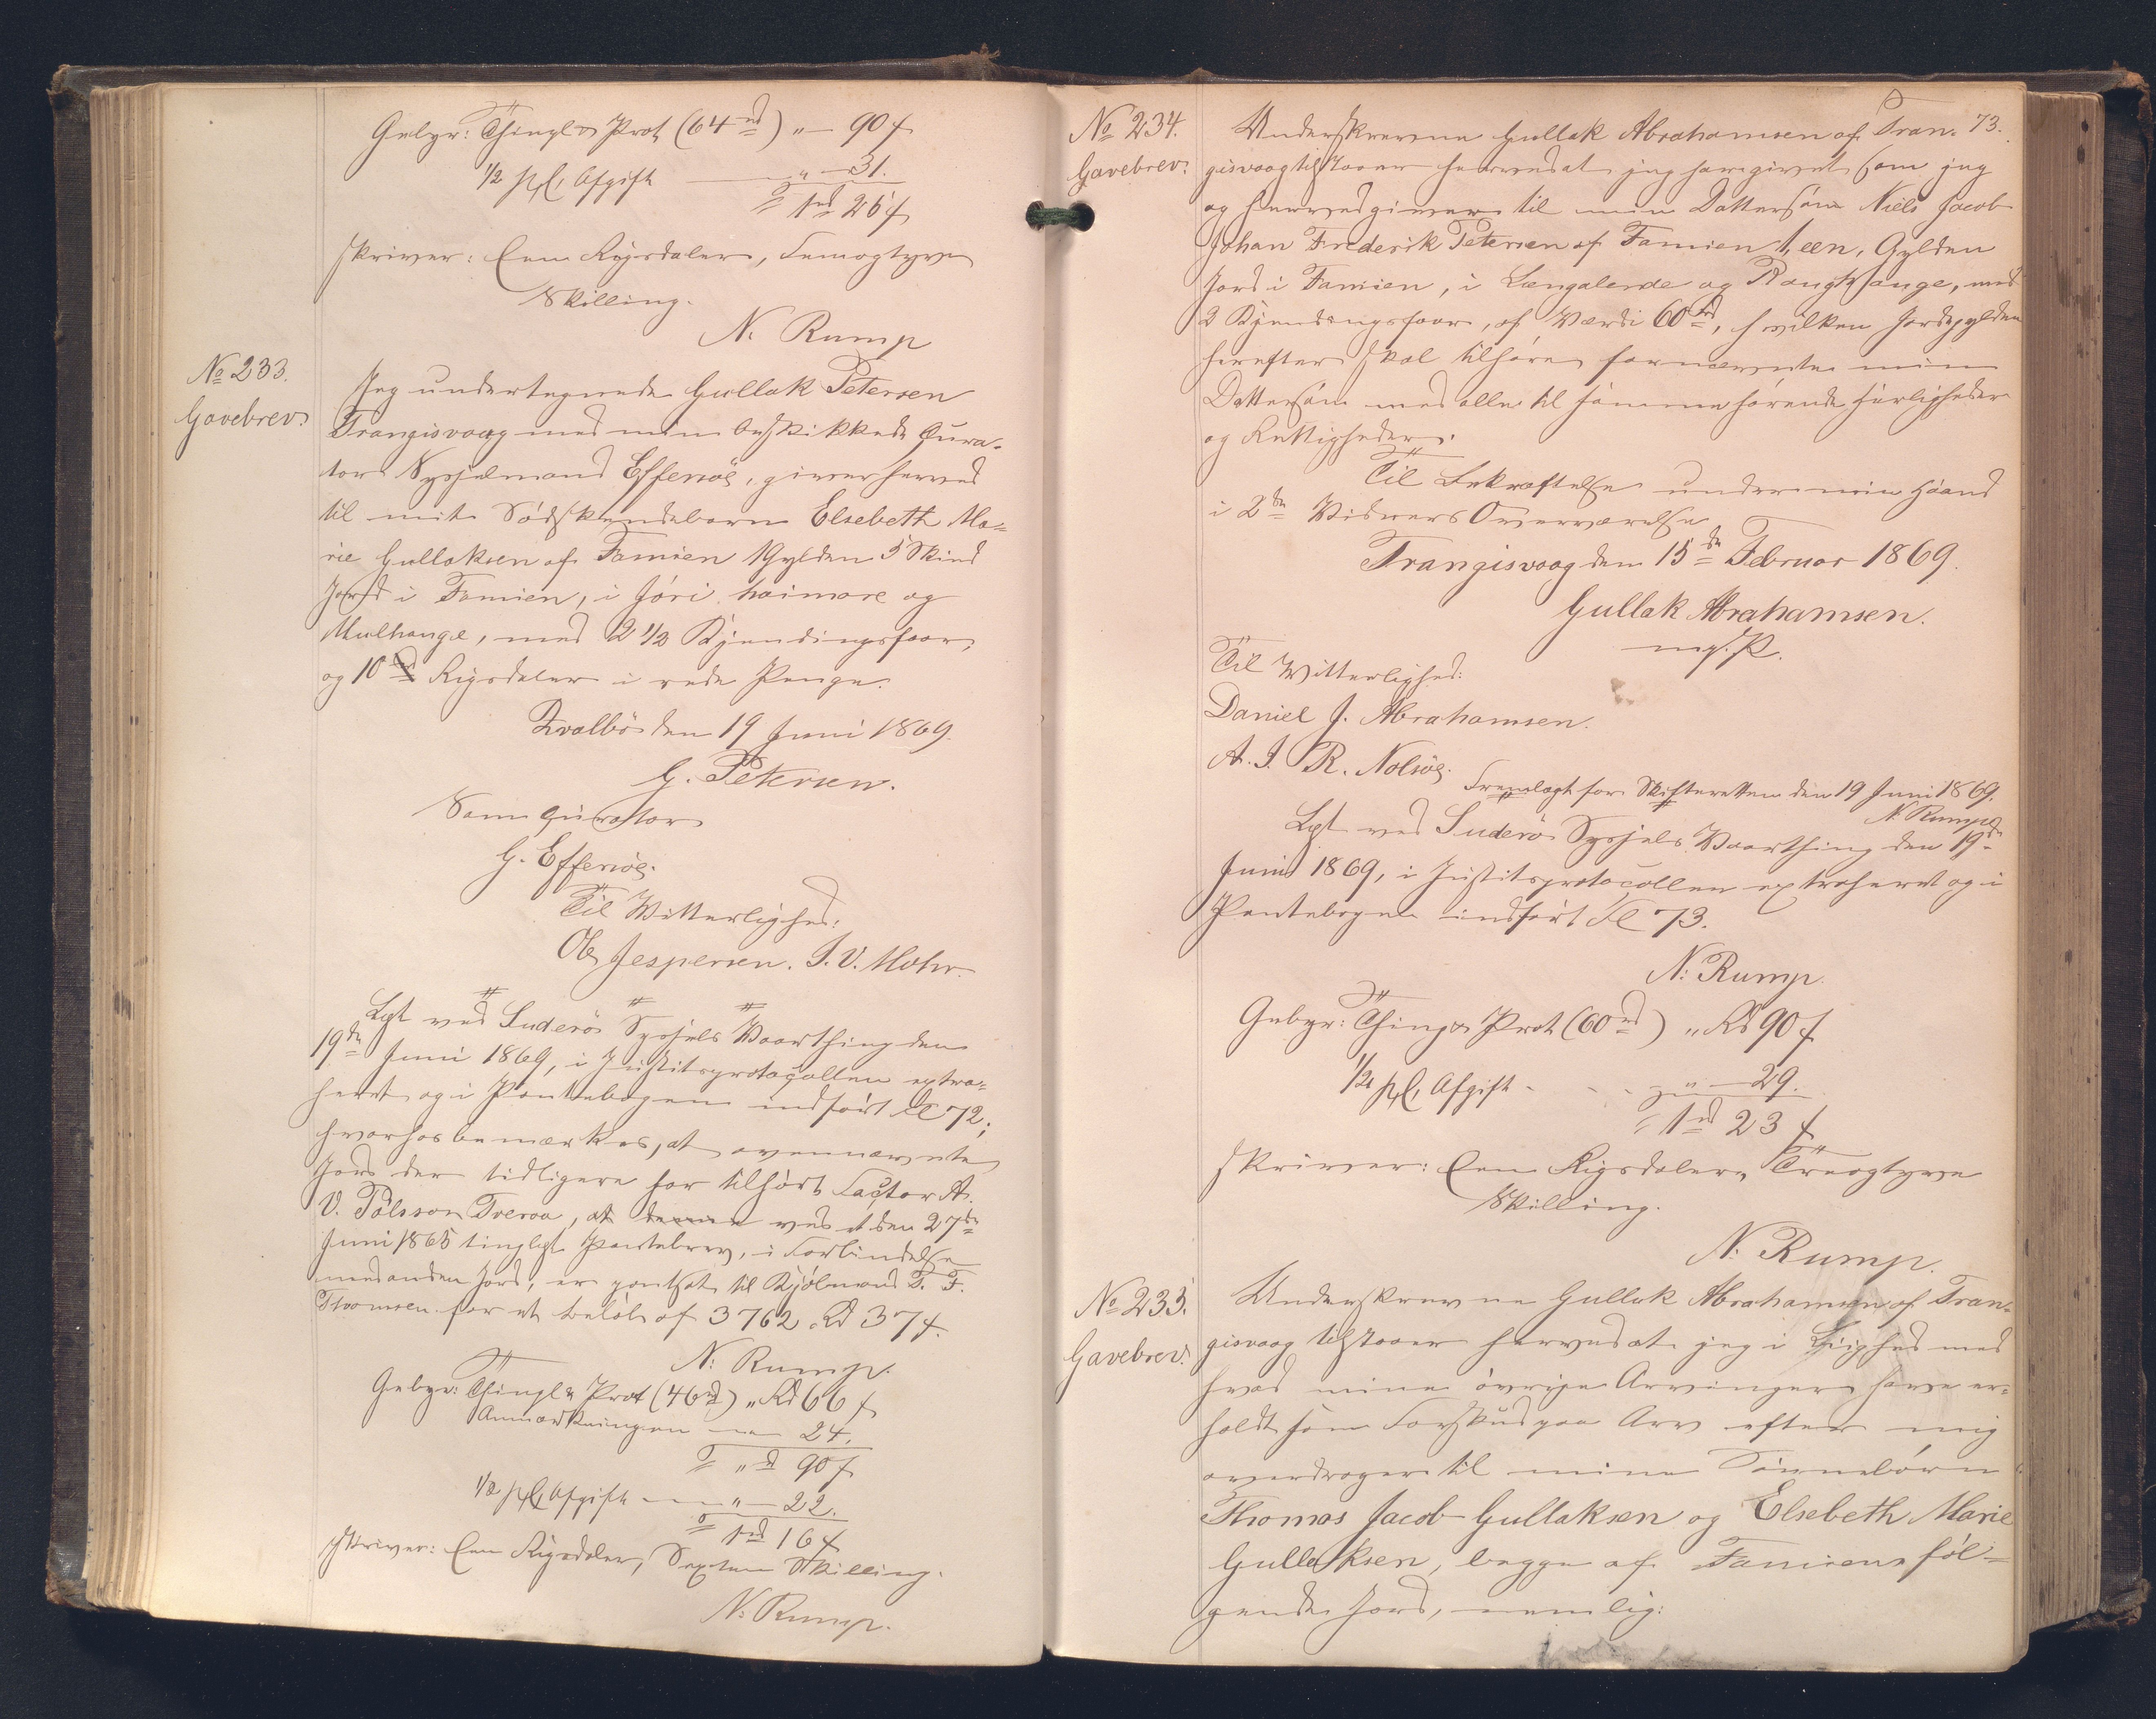 Gebyr: Thingl & Prot (64 rd) " — 90 ß
1/2 pCt Afgift — " — 31.
= 1 rd 25 ß
skriver: Een Rigsdaler, Femogtyve
Skilling.
N. Rump
No 233.
Gavebrev.
Jeg undertegnede Gullak Petersen
Trangisvaag med min beskikkede Cura-
tor Sysselmand Effersöe, giver herved
til mit Södskendebarn Elsebeth Ma-
rie Gullaksen af Famien 1 Gylden 5 Skind
Jord i Famien, i Jóri haimare og
Mulhauge, med 2 1/2 Kjendingsfaar,
og 10 Rigsdaler i rede Penge.
Qvalbö den 19 Juni 1869.
G. Petersen.
Som Curator
G. Effersöe.
Til Vitterlighed:
Ole Jespersen. J. V. Mohr.
Lyst ved Suderö Syssels Vaarthing den
19de Juni 1869, i Justitsprotocollen extra-
heret og i Pantebogen indfört Fol 72;
hvorhos bemærkes, at ovennævnte
Jord der tidligere har tilhört Factor A.
V. Pålsson Tveraa, at denne ved et den 27de
Juni 1865 tinglyst Pantebrev, i Forbindelse
med anden Jord, er pantsat til Kjölmand T. F.
Thomsen for et Belöb af 3762 Rd 37 ß.
N: Rump.
Gebyr: Thingl & Prot (46 rd) " Rd 66 ß
Anmærkningen — 24.
= " rd 90 ß
1/2 pCt Afgift — " — 22.
= 1 rd 16 ß
skriver: Een Rigsdaler, Sexten Skilling.
N: Rump.
73.
No 234.
Gavebrev.
Underskrevne Gullak Abrahamsen af Tran-
gisvaag tilstaaer herved at jeg har givet som jeg
og herved giver til min Dattersön Niels Jacob
Johan Frederik Petersen af Famien 1, een, Gylden
Jord i Famien, i Længalende og Raughauge, med
2 Kjendingsfaar, af Værdi 60 Rd, hvilken Jordgylden
herefter skal tilhöre fornævnte min
Dattersön med alle til samme hörende Herligheder
og Rettigheder.
Til Bekræftelse under min Haand
i 2de Vidners Overværelse
Trangisvaag den 15de Februar 1869.
Gullak Abrahamsen.
m. f. P.
Til Vitterlighed:
Daniel J. Abrahamsen.
A. J. R. Nolsöe.
Fremlagt for Skifteretten den 19 Juni 1869.
N. Rump
Lyst ved Suderö Syssels Vaarthing den 19de
Juni 1869, i Justitsprotocollen extraheret og i
Pantebogen indfört Fol 73.
N: Rump.
Gebyr: Thing & Prot (60 rd) " Rd 90 ß
1/2 pCt Afgift - - - " — 29.
= 1 rd 23 ß
skriver: Een Rigsdaler, Treogtyve
Skilling.
N: Rump.
No 235.
Gavebrev.
Underskrevne Gullak Abrahamsen af Tran-
gisvaag tilstaaer herved at jeg i Lighed med
hvad mine övrige Arvinger have er-
holdt som Forskud paa Arv efter mig
overdrager til mine Sönnebörn
Thomas Jacob Gullaksen og Elsebeth Marie
Gullaksen, begge af Famien föl-
gende Jord, nemlig: